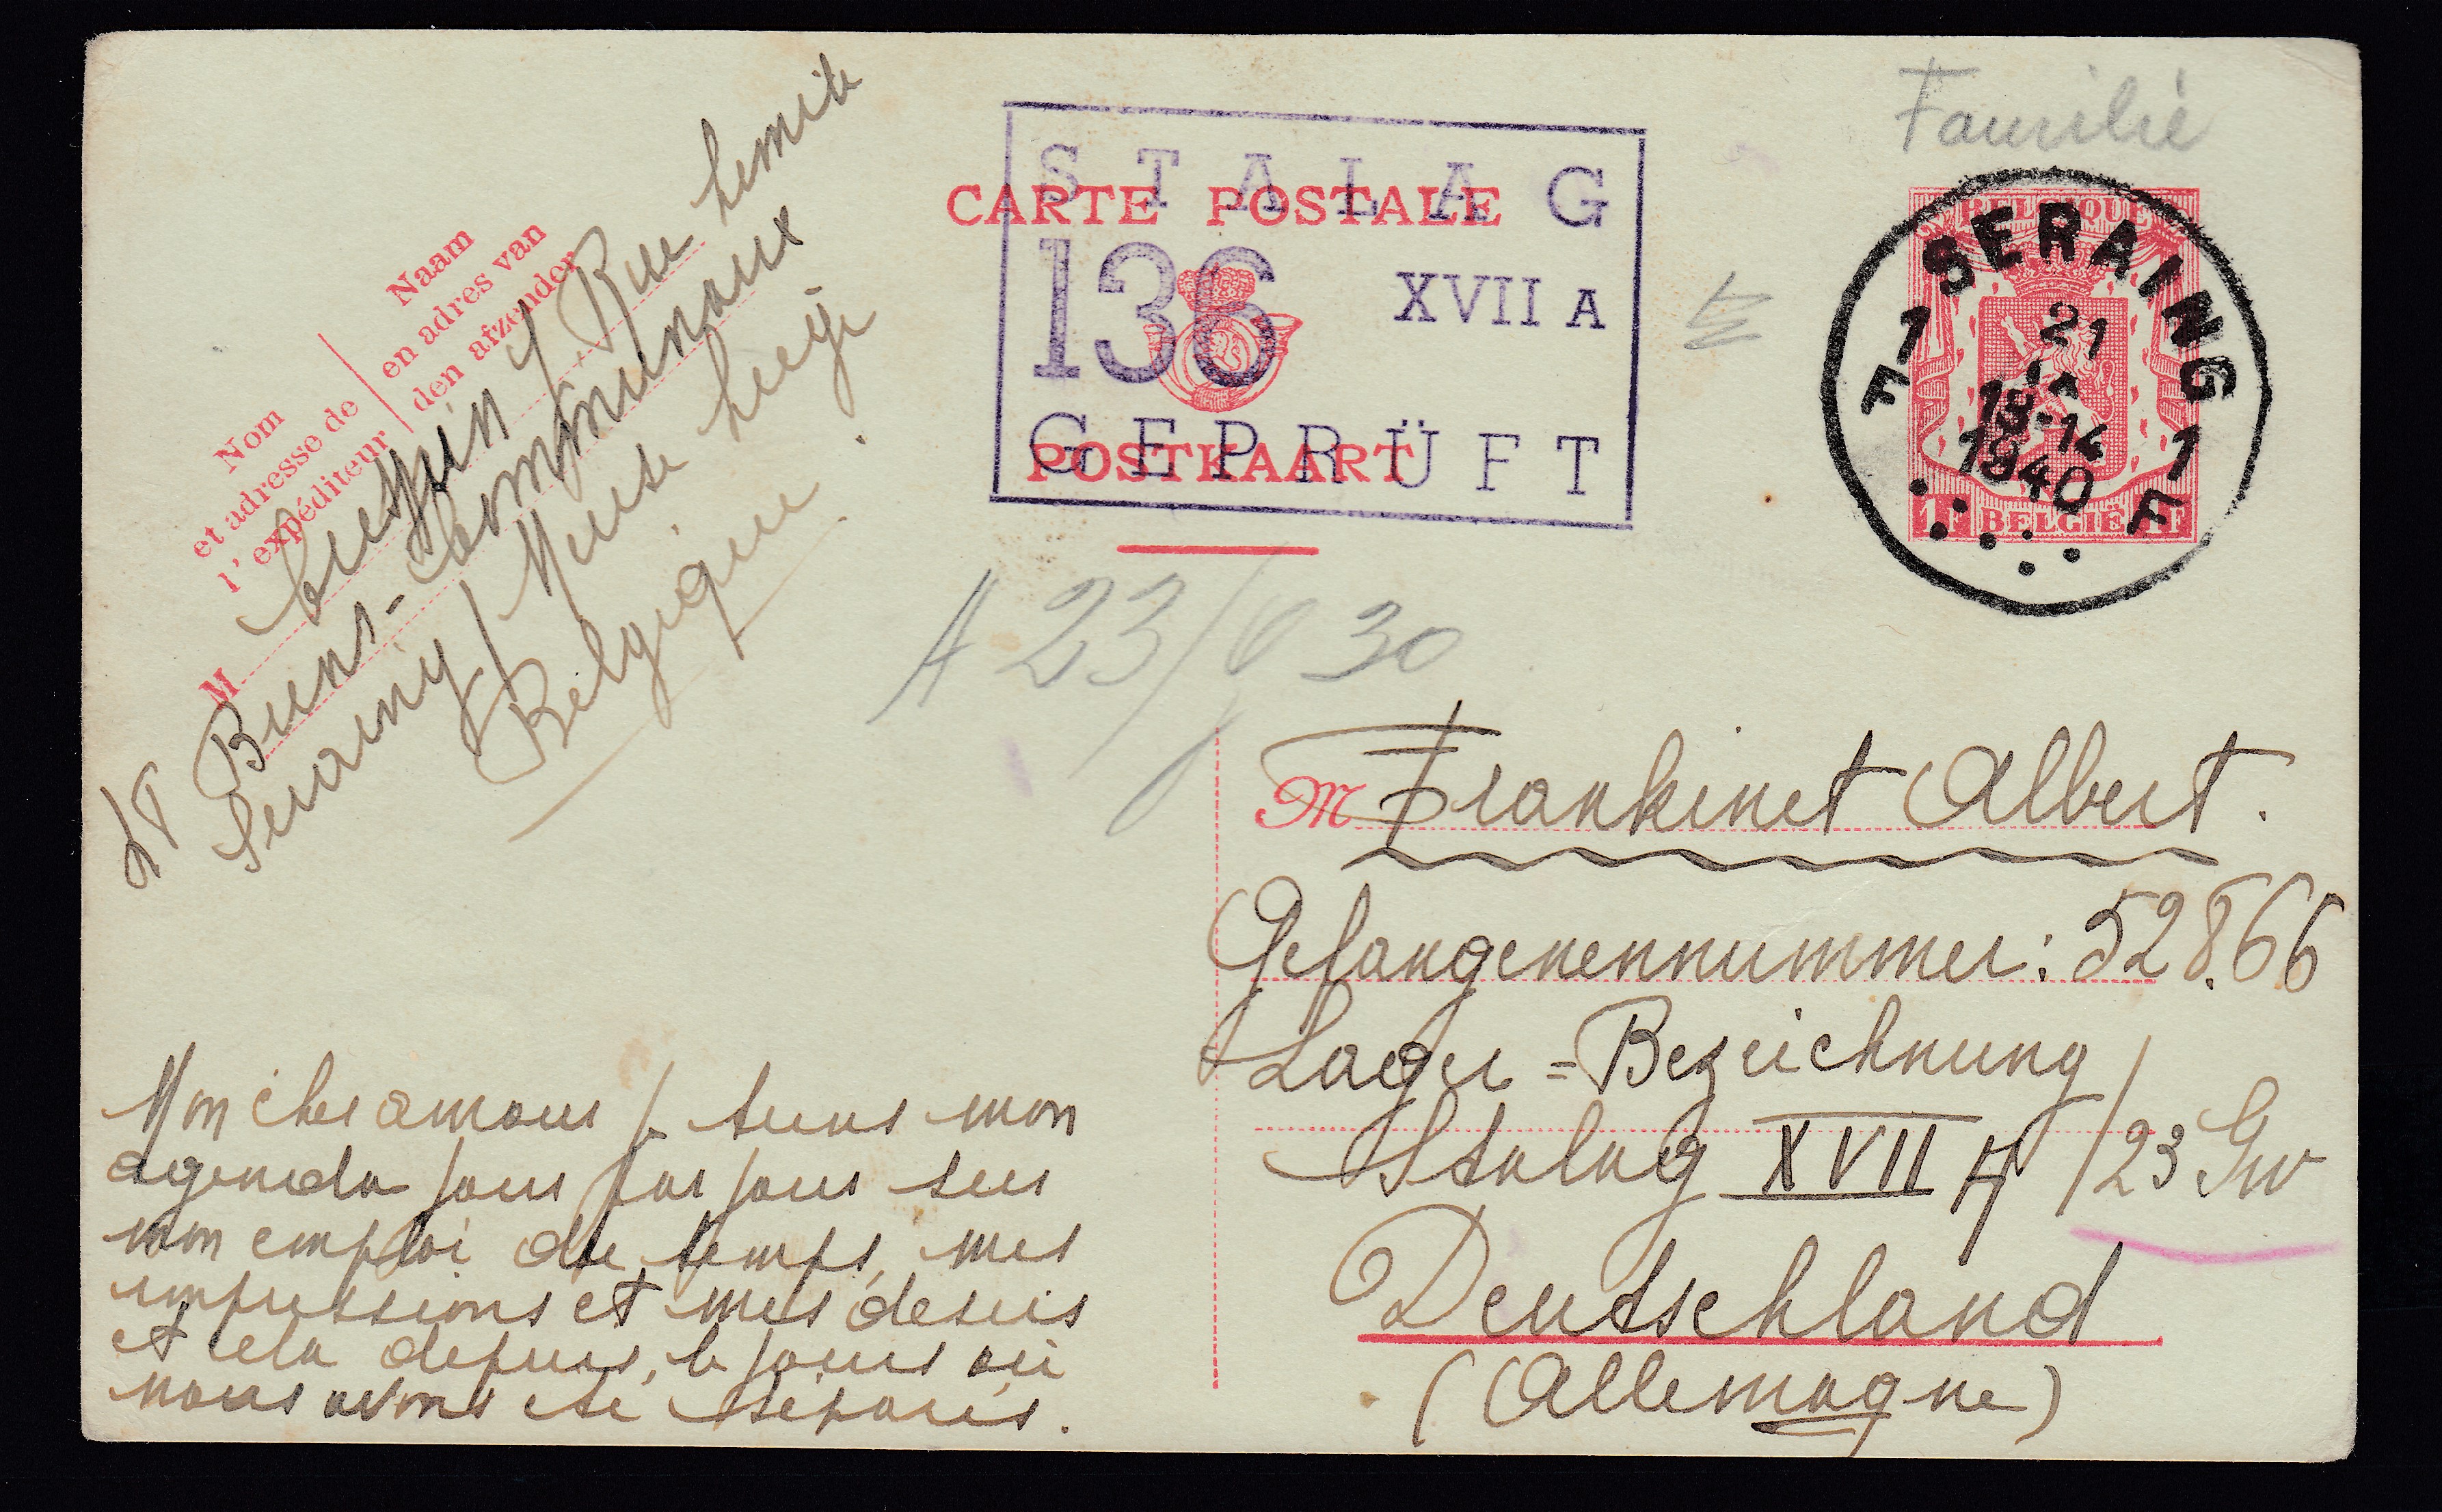 Familie
CARTE POSTALE
POSTKAART
STALAG
136 XVII A
GEPRÜFT
BELGIQUE
1F BELGIË 1F
SERAING
1 F 1 F
21
13-14
1940
Nom
et adresse de
l'expéditeur
Naam
en adres van
den afzender
M
Rue
Biens-Communaux
Seraing/Meuse Liége
Belgique.
A 23/ 30
M Frankinet Albert.
Gefangenennummer: 52866
Lager=Bezeichnung
Stalag XVII A /23 Gw
Deutschland
(Allemagne)
Mon cher amour je tiens mon
agenda jour par jour sur
mon emploi du temps, mes
impressions et mes désirs
et cela depuis, le jour où
nous avons été séparés.